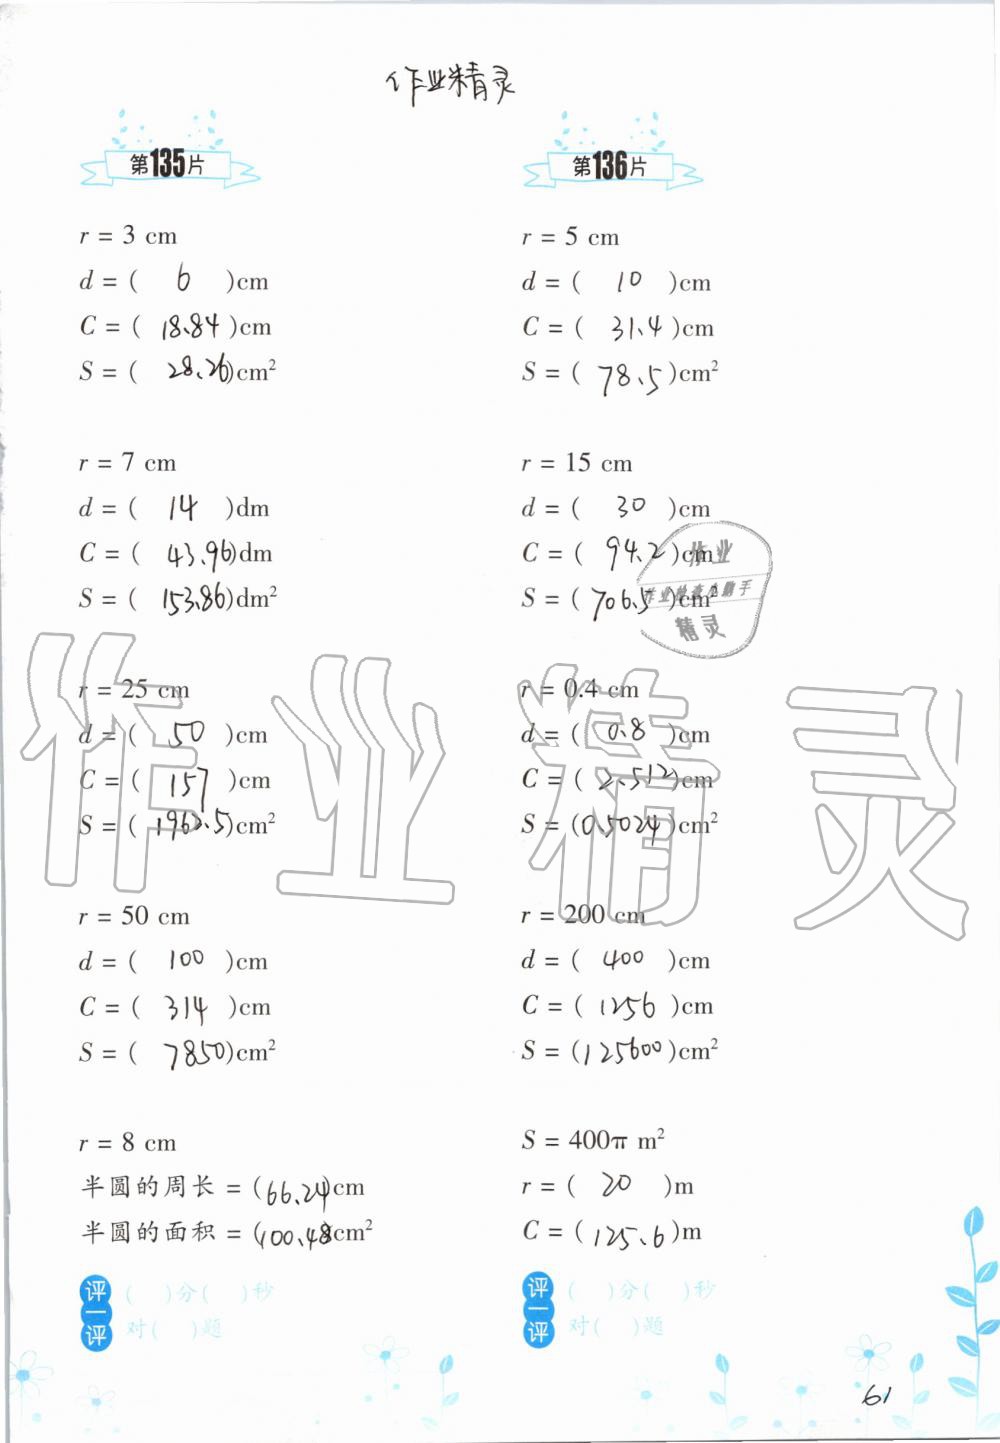 作业精灵
第135片
r = 3 cm
d = ( 6 )cm
C = ( 18.84 )cm
S = ( 28.26 )cm²
r = 7 cm
d = ( 14 )dm
C = ( 43.96 )dm
S = ( 153.86 )dm²
r = 25 cm
d = ( 50 )cm
C = ( 157 )cm
S = ( 1962.5 )cm²
r = 50 cm
d = ( 100 )cm
C = ( 314 )cm
S = ( 7850 )cm²
r = 8 cm
半圆的周长 = ( 66.24 )cm
半圆的面积 = ( 100.48 )cm²
评一评
( )分( )秒
对( )题
第136片
r = 5 cm
d = ( 10 )cm
C = ( 31.4 )cm
S = ( 78.5 )cm²
r = 15 cm
d = ( 30 )cm
C = ( 94.2 )cm
S = ( 706.5 )cm²
作业
作业检查小助手
精灵
r = 0.4 cm
d = ( 0.8 )cm
C = ( 2.512 )cm
S = ( 0.5024 )cm²
r = 200 cm
d = ( 400 )cm
C = ( 1256 )cm
S = ( 125600 )cm²
S = 400π m²
r = ( 20 )m
C = ( 125.6 )m
评一评
( )分( )秒
对( )题
作业精灵
61